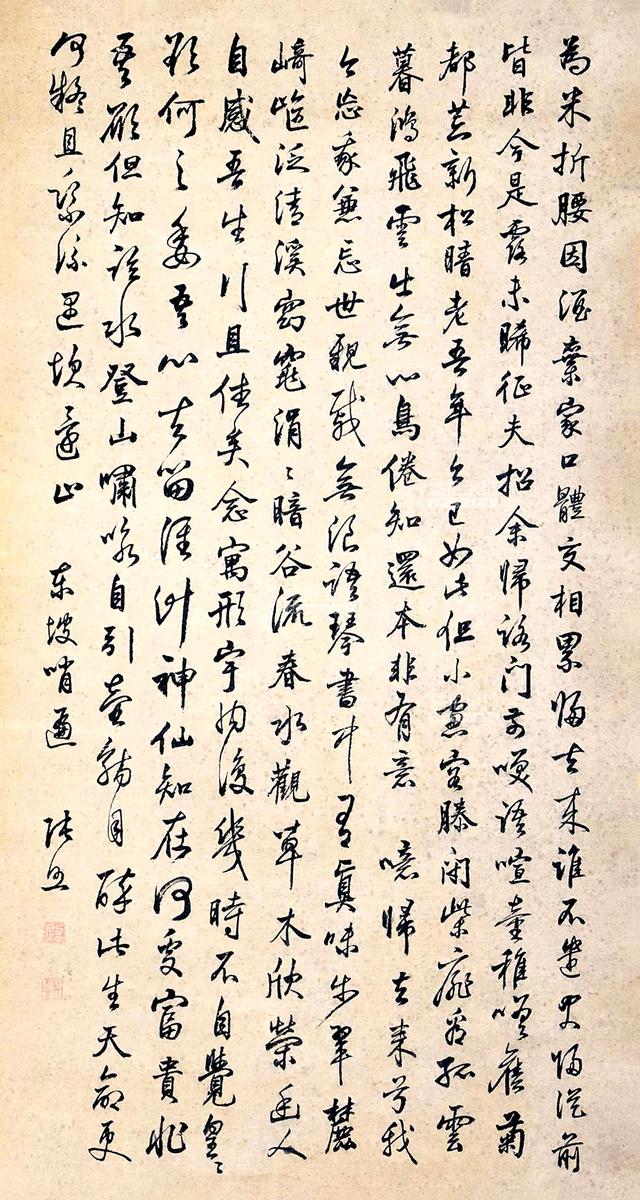 為米折腰因酒棄家口體交相累歸去来誰不遣君歸從前
皆非今是露未晞征夫指余歸路门前咲語喧童稚嗟舊菊
都荒新松暗老吾年今已如此但小窗容膝闭柴扉看孤雲
暮鴻飛雲出無心鳥倦知還本非有意 噫歸去来兮我
今忘我兼忘世親戚無浪語琴書中有真味步翠麓
崎嶇泛清溪窈窕涓〻暗谷流春水觀草木欣榮幽人
自感吾生行且休矣念寓形宇内復幾時不自覺皇〻
欲何之委吾心去留誰計神仙知在何處富貴非
吾願但知臨水登山嘯詠自引壺觴自醉此生天命更
何疑且乘流遇坎還止 東坡哨遍 張照